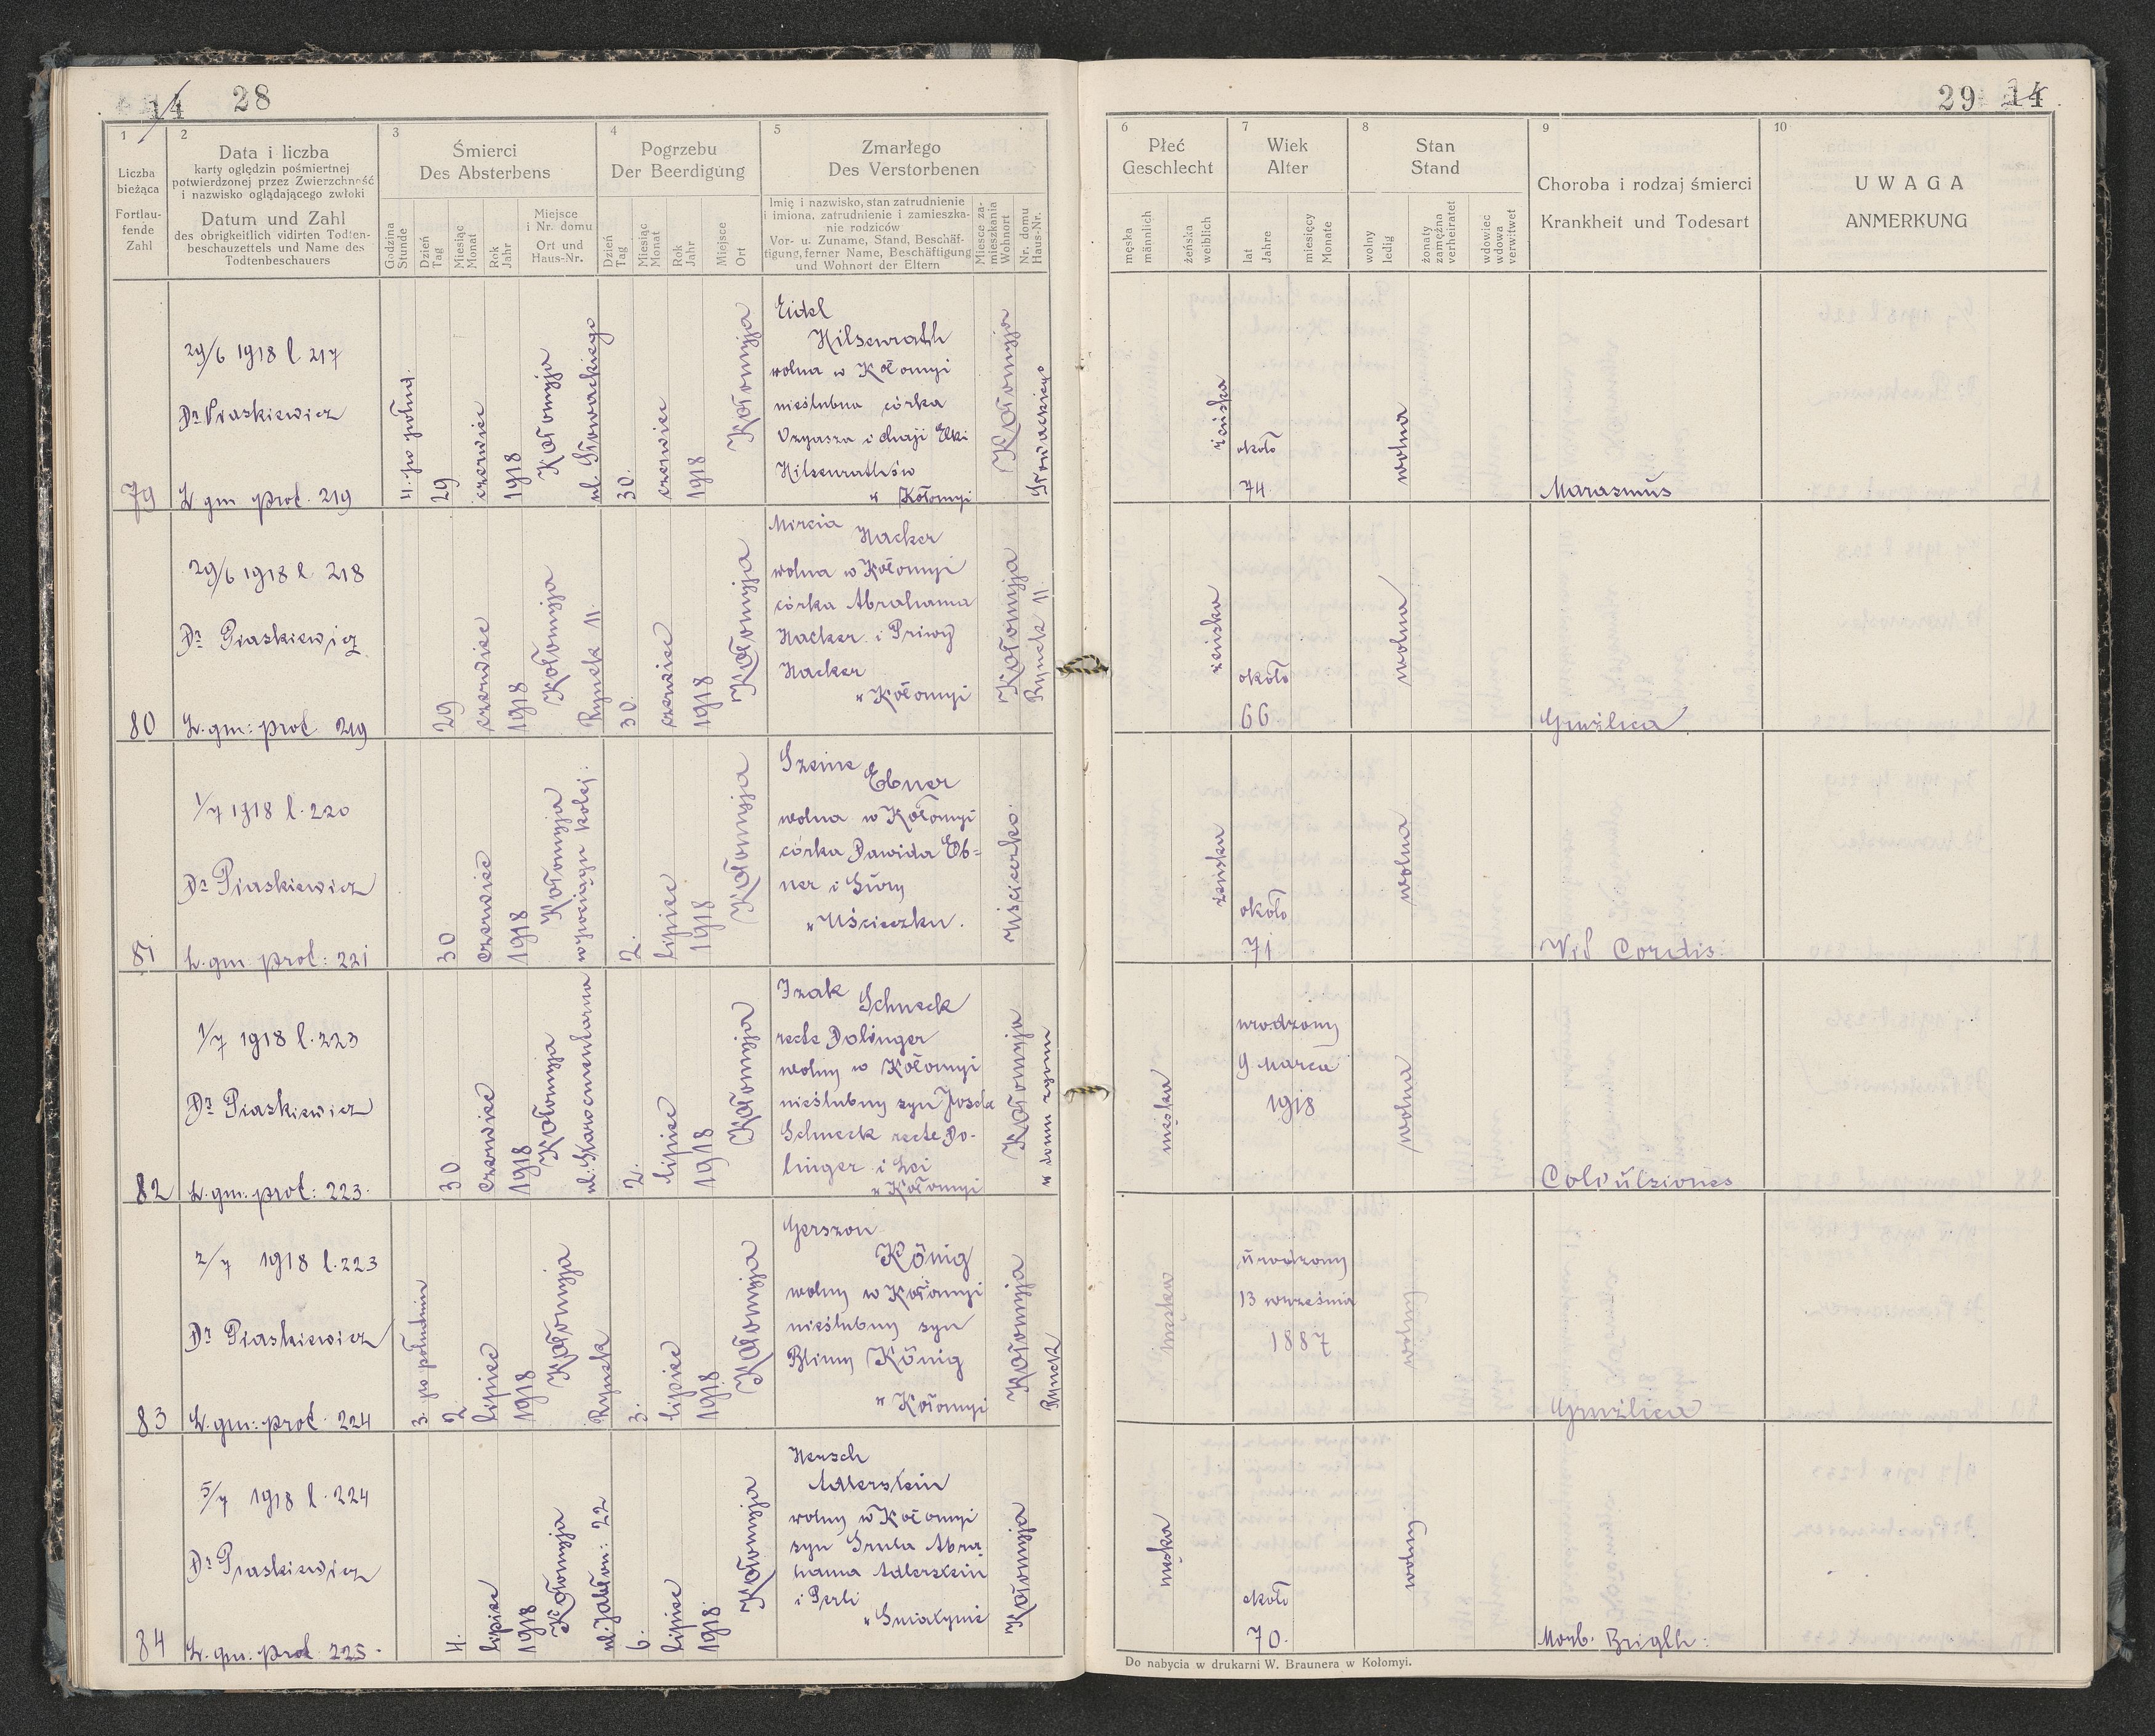 14 28
29 14
1
Liczba
bieżąca
Fortlau-
fende
Zahl
2
Data i liczba
karty oględzin pośmiertnej
potwierdzonej przez Zwierzchność
i nazwisko oglądającego zwłoki
Datum und Zahl
des obrigkeitlich vidirten Todten-
beschauzettels und Name des
Todtenbeschauers
3
Śmierci
Des Absterbens
Godzina
Stunde
Dzień
Tag
Miesiąc
Monat
Rok
Jahr
Miejsce
i Nr. domu
Ort und
Haus-Nr.
4
Pogrzebu
Der Beerdigung
Dzień
Tag
Miesiąc
Monat
Rok
Jahr
Miejsce
Ort
5
Zmarłego
Des Verstorbenen
Imię i nazwisko, stan zatrudnienie
i imiona, zatrudnienie i zamieszka-
nie rodziców
Vor- u. Zuname, Stand, Beschäf-
tigung, ferner Name, Beschäftigung
und Wohnort der Eltern
Miesce za-
mieszkania
Wohnort
Nr. domu
Haus-Nr.
6
Płeć
Geschlecht
męska
männlich
żeńska
weiblich
7
Wiek
Alter
lat
Jahre
miesięcy
Monate
8
Stan
Stand
wolny
ledig
żonaty
zamężna
verheiratet
wdowiec
wdowa
verwitwet
9
Choroba i rodzaj śmierci
Krankheit und Todesart
10
UWAGA
ANMERKUNG
79
29/6 1918 l. 217
Dr Piaskiewicz
L. gm. prot. 219
4. po połud.
29
czerwiec
1918
Kołomyja
ul. Słowackiego
30.
czerwiec
1918
Kołomyja
Eidel
Hilsenrath
wolna w Kołomyi
nieślubna córka
Ozyasza i Chaji Elki
Hilsenrathów
w Kołomyi
Kołomyja
Słowackiego
żeńska
około
74.
wolna
Marasmus
80
29/6 1918 l. 218
Dr Piaskiewicz
L. gm: prot. 219
29
czerwiec
1918
Kołomyja
Rynek 11.
30.
czerwiec
1918
Kołomyja
Mircia
Hacker
wolna w Kołomyi
córka Abrahama
Hacker i Priwy
Hacker
w Kołomyi
Kołomyja
Rynek 11.
żeńska
około
66
wolna
Gruźlica
81
1/7 1918 l. 220
Dr Piaskiewicz
L. gm. prot: 221
30
czerwiec
1918
Kołomyja
wyociągu kolej:
2.
lipiec
1918
Kołomyja
Szeine
Ebner
wolna w Kołomyi
córka Dawida Eb=
ner i Sury
w Uścieczku.
Uścieczko.
żeńska
około
71
wolna
Vit Cordis.
82
1/7 1918 l. 223
Dr Piaskiewicz
L. gm. prot: 223.
30
czerwiec
1918
Kołomyja
2.
lipiec
1918
Kołomyja
Izak
Schneck
recte Dolinger
wolny w Kołomyi
nieślubny syn Josela
Schneck recte Do-
linger i Lei
w Kołomyi
Kołomyja
męska
urodzony
9 Marca
1918
wolna
Colvulziones
83
2/7 1918 l. 223
Dr Piaskiewicz
L. gm: prot 224
3. po południu
2
lipiec
1918
Kołomyja
Rynek
3.
lipiec
1918
Kołomyja
Gerszon
König
wolny w Kołomyi
nieślubny syn
Blimy König
w Kołomyi
Kołomyja
Rynek
męska
urodzony
13 września
1887
wolny
Gruźlica
84
5/7 1918 l. 224
Dr Piaskiewicz
L. gm. prot. 225.
4.
lipiec
1918
Kołomyja
ul. Jabłon: 22
6.
lipiec
1918.
Kołomyja
Hersch
Adlerstein
wolny w Kołomyi
syn Srula Abra
hama Adlerstein
i Perli
w Sniatynie
Kołomyja
męska
około
70.
wolny
Morb. Brigth:
Do nabycia w drukarni W. Braunera w Kołomyi.